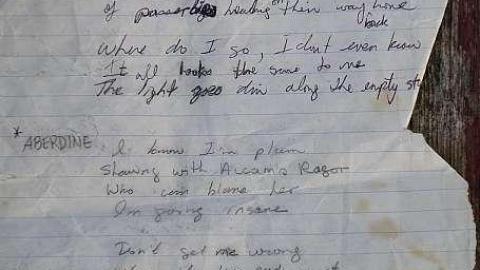 of passers heading on their way home
back
Where do I go, I dont even know
It all looks the same to me
The light goes dim along the empty st
* ABERDINE
I know I'm plain
Shaving with Accam's Razor
Who can blame her
I'm going insane
Don't get me wrong